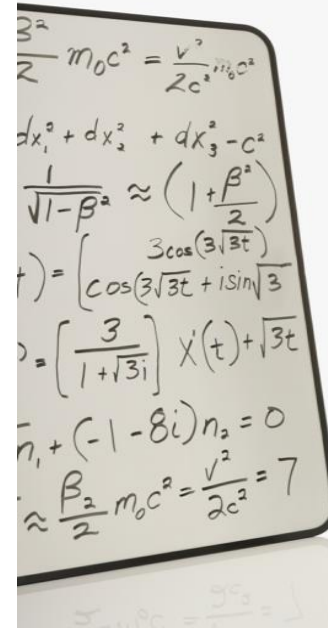 β²/2 m₀c² = v²/2c² m₀c²
dx₁² + dx₂² + dx₃² - c²
1/√1-β² ≈ (1 + β²/2)
t) = [3cos(3√3t) / cos(3√3t + isin√3
) = [3/1+√3i] X(t) + √3t
n₁ + (-1 - 8i)n₂ = 0
≈ β₂/2 m₀c² = v²/2c² = 7